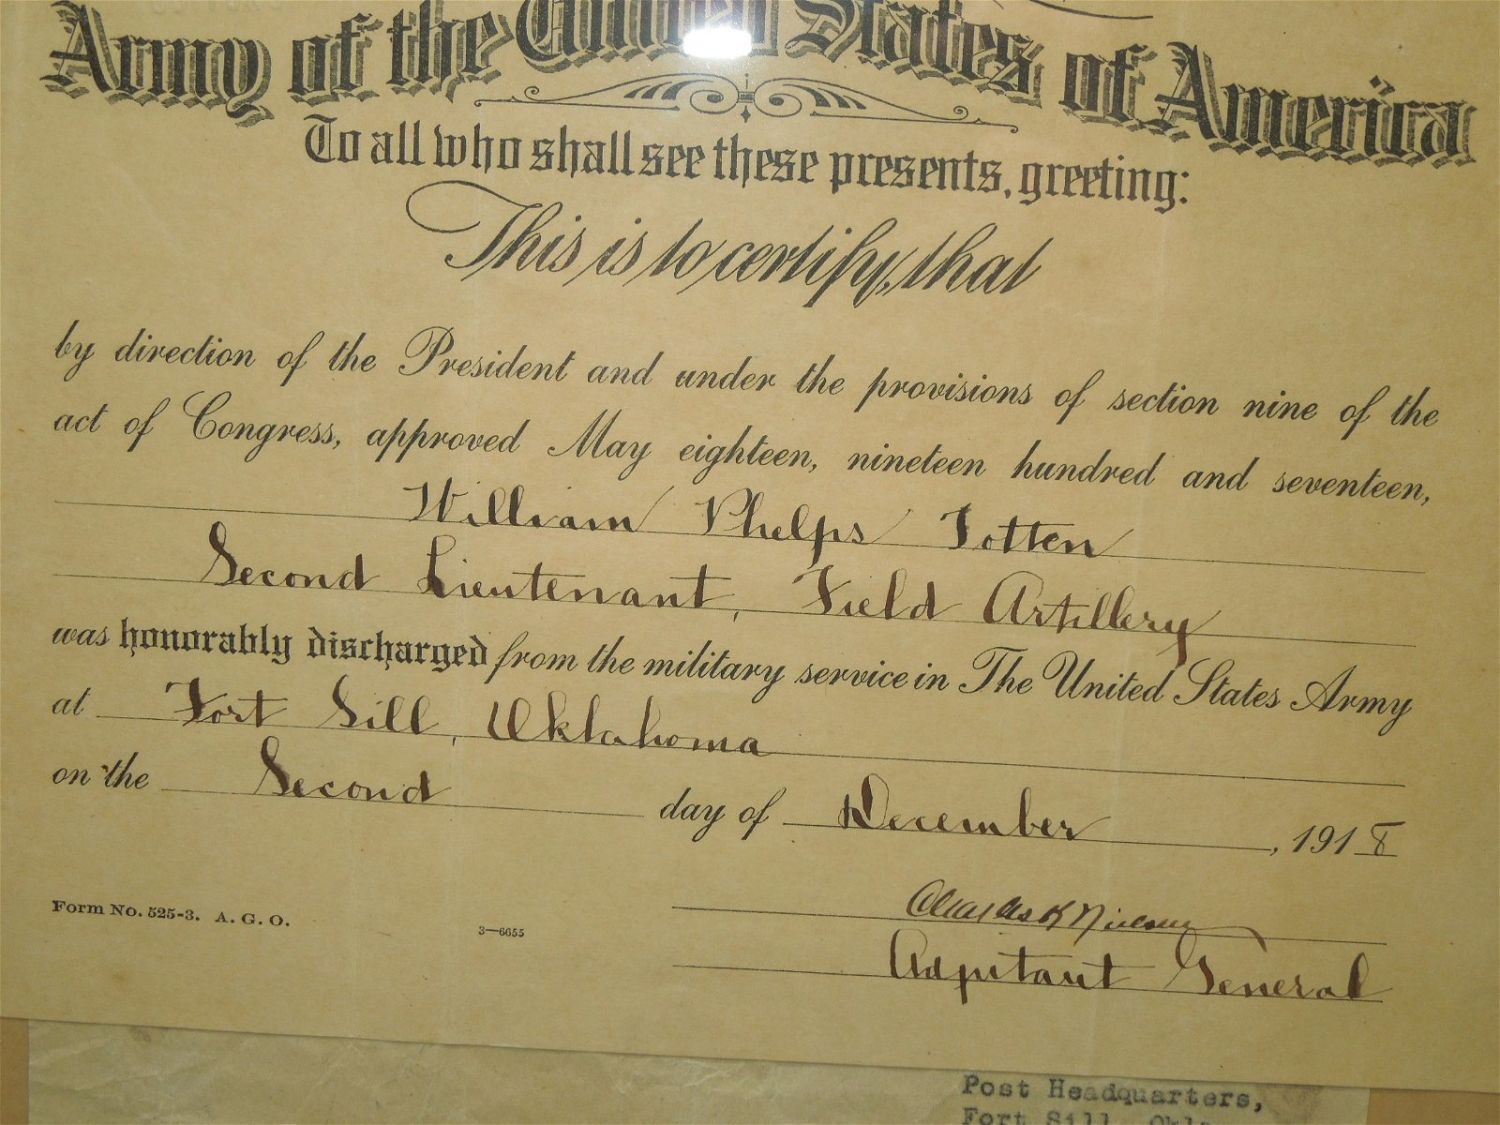 Army of the United States of America
To all who shall see these presents, greeting:
This is to certify, that
by direction of the President and under the provisions of section nine of the
act of Congress, approved May eighteen, nineteen hundred and seventeen,
William Phelps Totten
Second Lieutenant, Field Artillery
was honorably discharged from the military service in The United States Army
at Fort Sill, Oklahoma
on the Second day of December, 1918
Charles K Nielsen
Adjutant General
Form No. 525-3. A. G. O.
3—6655
Post Headquarters,
Fort Sill, Okla